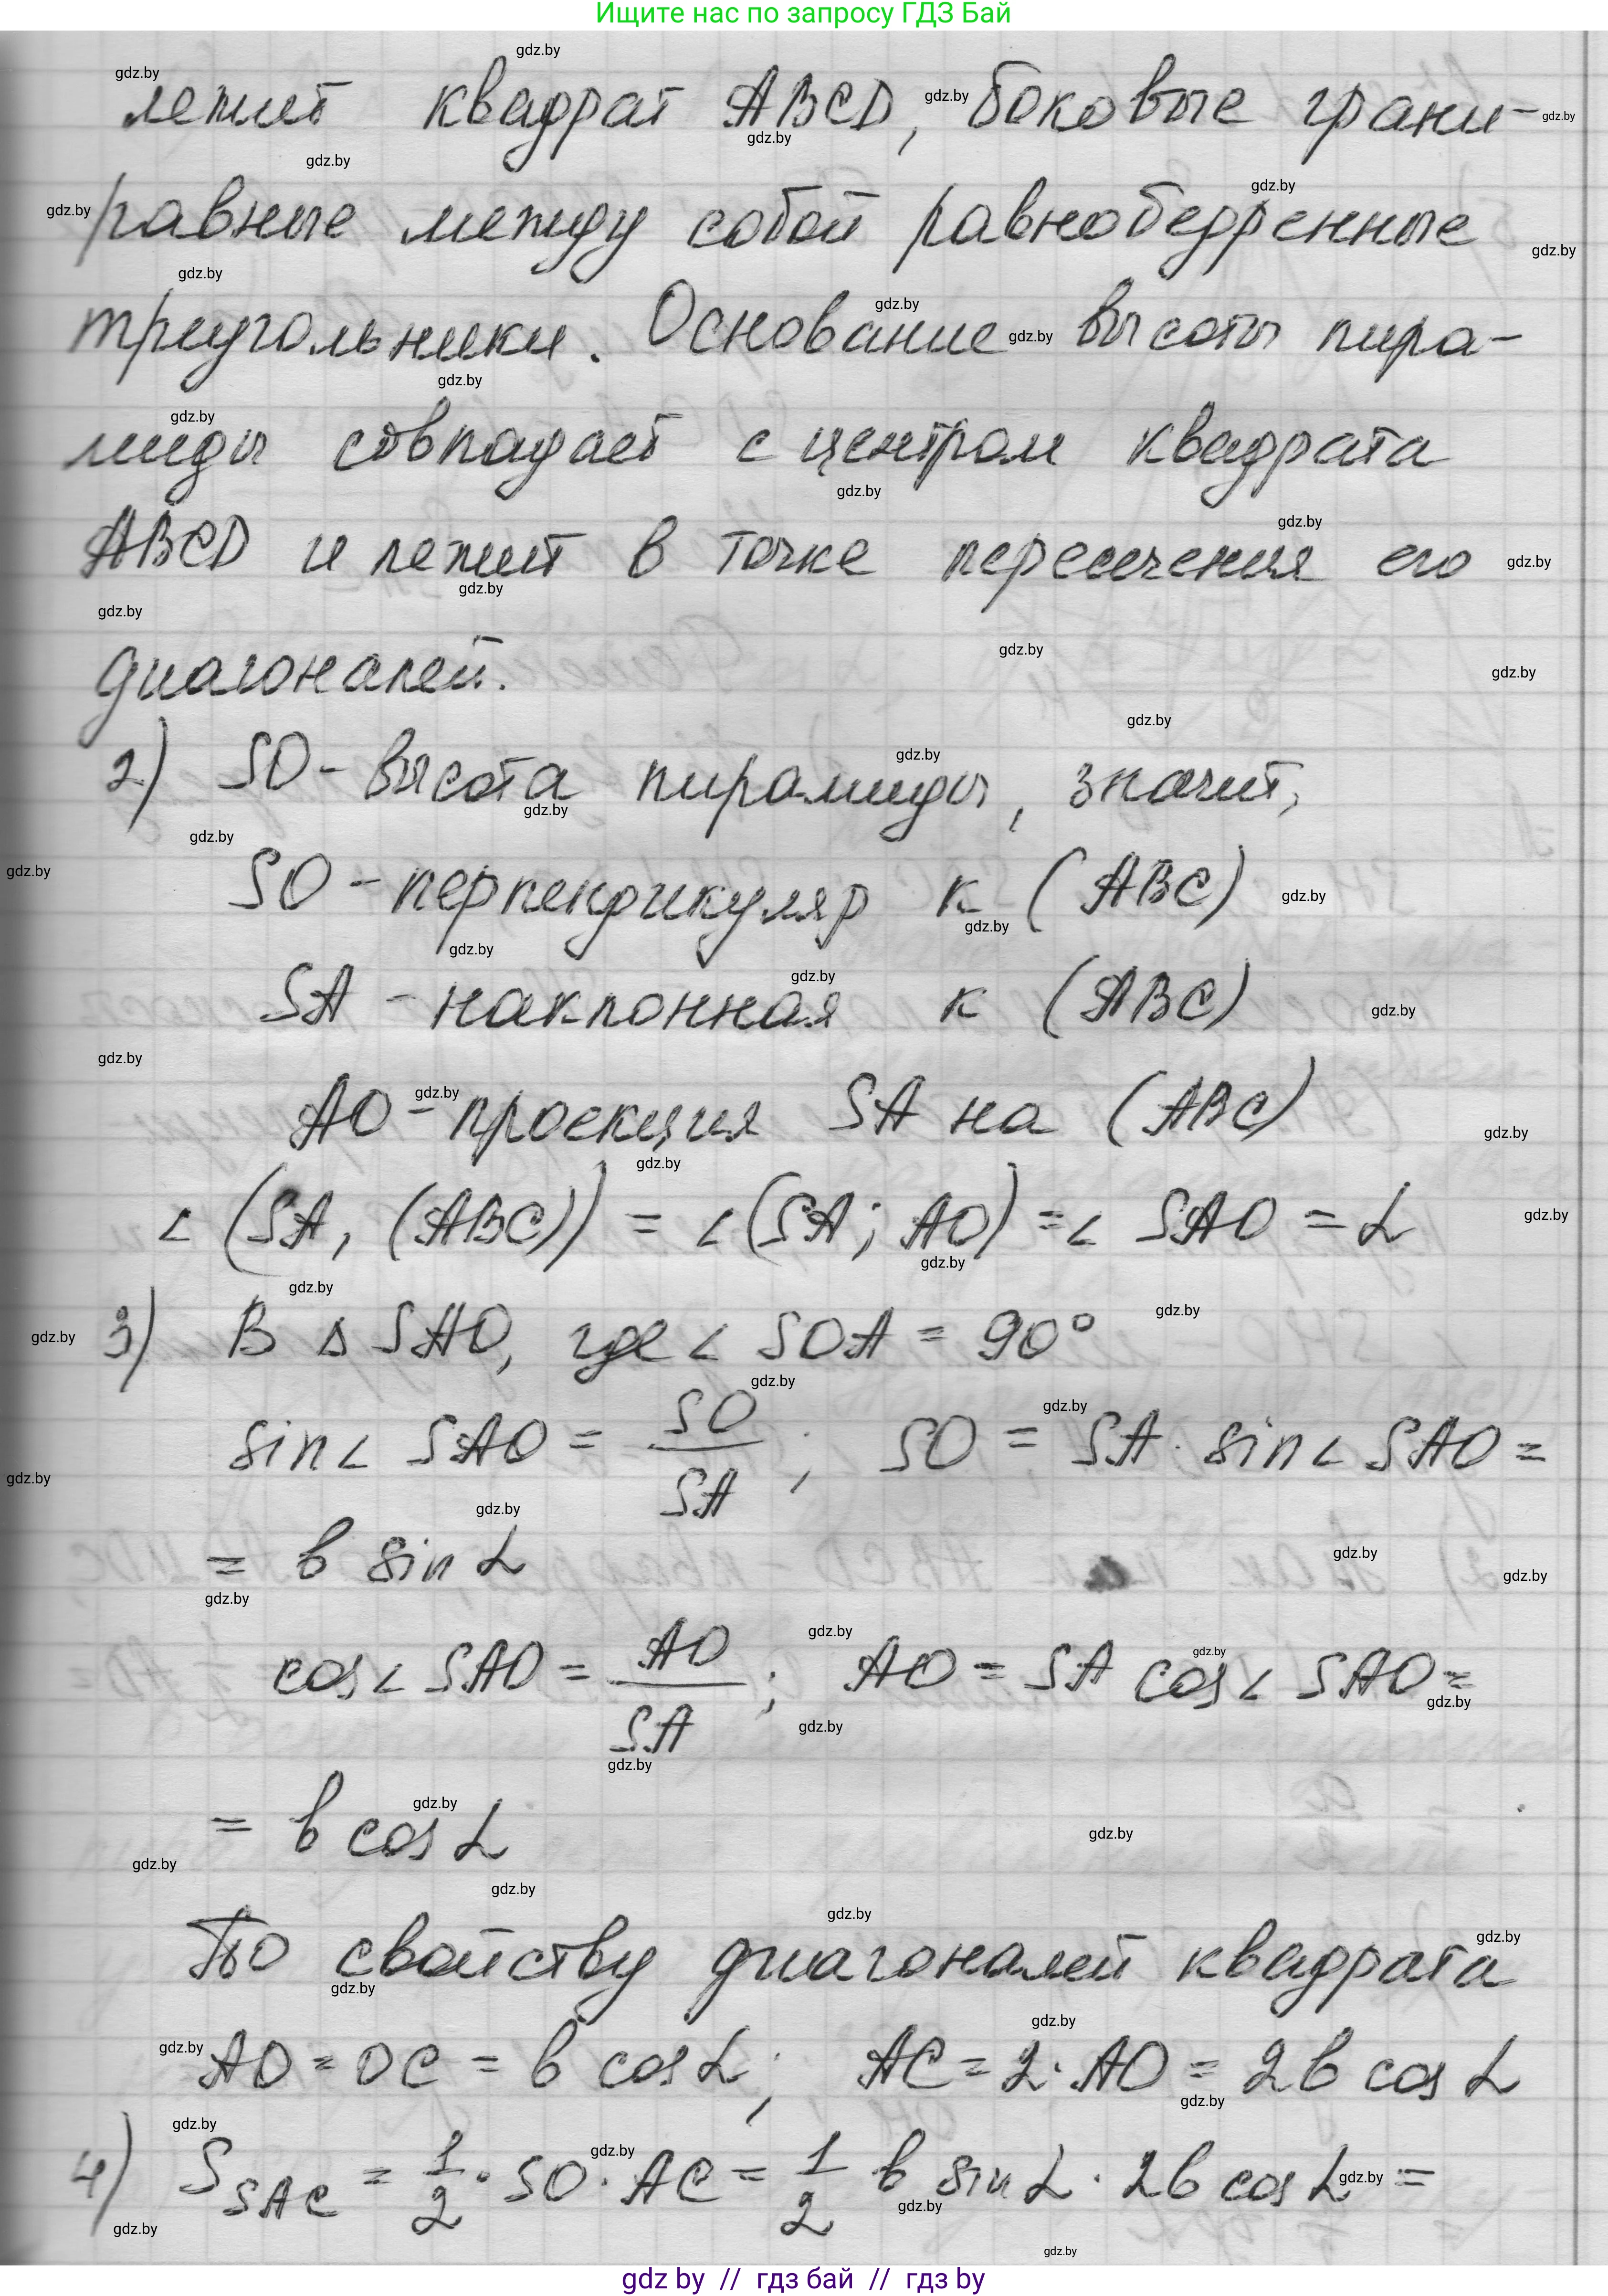 Ищите нас по запросу ГДЗ Бай
лежит квадрат ABCD, боковые грани-
равные между собой равнобедренные
треугольники. Основание высоты пира-
миды совпадает с центром квадрата
ABCD и лежит в точке пересечения его
диагоналей.
2) SO - высота пирамиды, значит,
SO - перпендикуляр к (ABC)
SA - наклонная к (ABC)
AO - проекция SA на (ABC)
∠ (SA, (ABC)) = ∠ (SA; AO) = ∠ SAO = α
3) В △ SAO, где ∠ SOA = 90°
sin∠ SAO = SO/SA ; SO = SA · sin∠ SAO =
= b sin α
cos∠ SAO = AO/SA ; AO = SA cos∠ SAO =
= b cos α
По свойству диагоналей квадрата
AO = OC = b cos α ; AC = 2 · AO = 2b cos α
4) S SAC = 1/2 · SO · AC = 1/2 b sin α · 2b cos α =
gdz by // гдз бай // гдз by